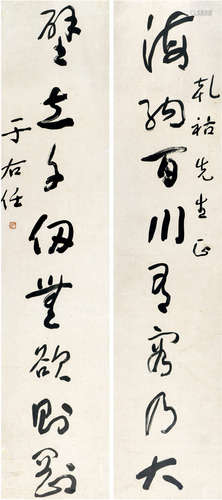 乾祐先生正
海纳百川有容乃大
壁立千仞無欲则刚
于右任